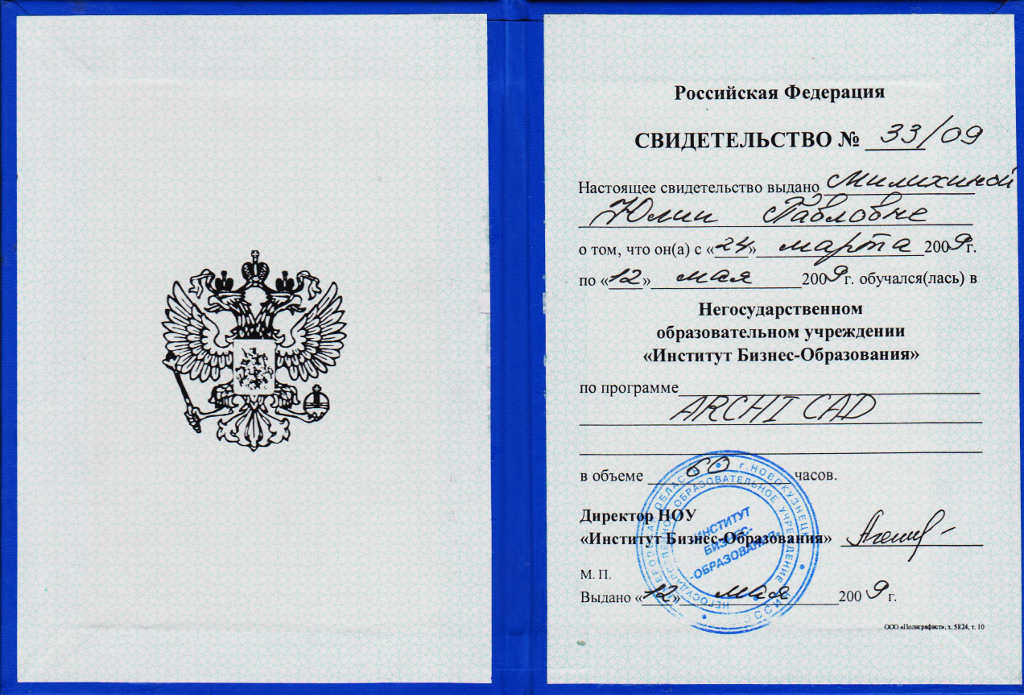 Российская Федерация
СВИДЕТЕЛЬСТВО № 33/09
Настоящее свидетельство выдано Милихиной
Юлии Павловне
о том, что он(а) с «24» марта 2009 г.
по «12» мая 2009 г. обучался(лась) в
Негосударственном
образовательном учреждении
«Институт Бизнес-Образования»
по программе
ARCHI CAD
в объеме 60 часов.
Директор НОУ
«Институт Бизнес-Образования»
М. П.
Выдано «12» мая 2009 г.
ООО «Полиграфист», з. 5824, т. 10
г. НОВОКУЗНЕЦК
НЕГОСУДАРСТВЕННОЕ ОБРАЗОВАТЕЛЬНОЕ УЧРЕЖДЕНИЕ
ИНСТИТУТ
БИЗНЕС-
ОБРАЗОВАНИЯ